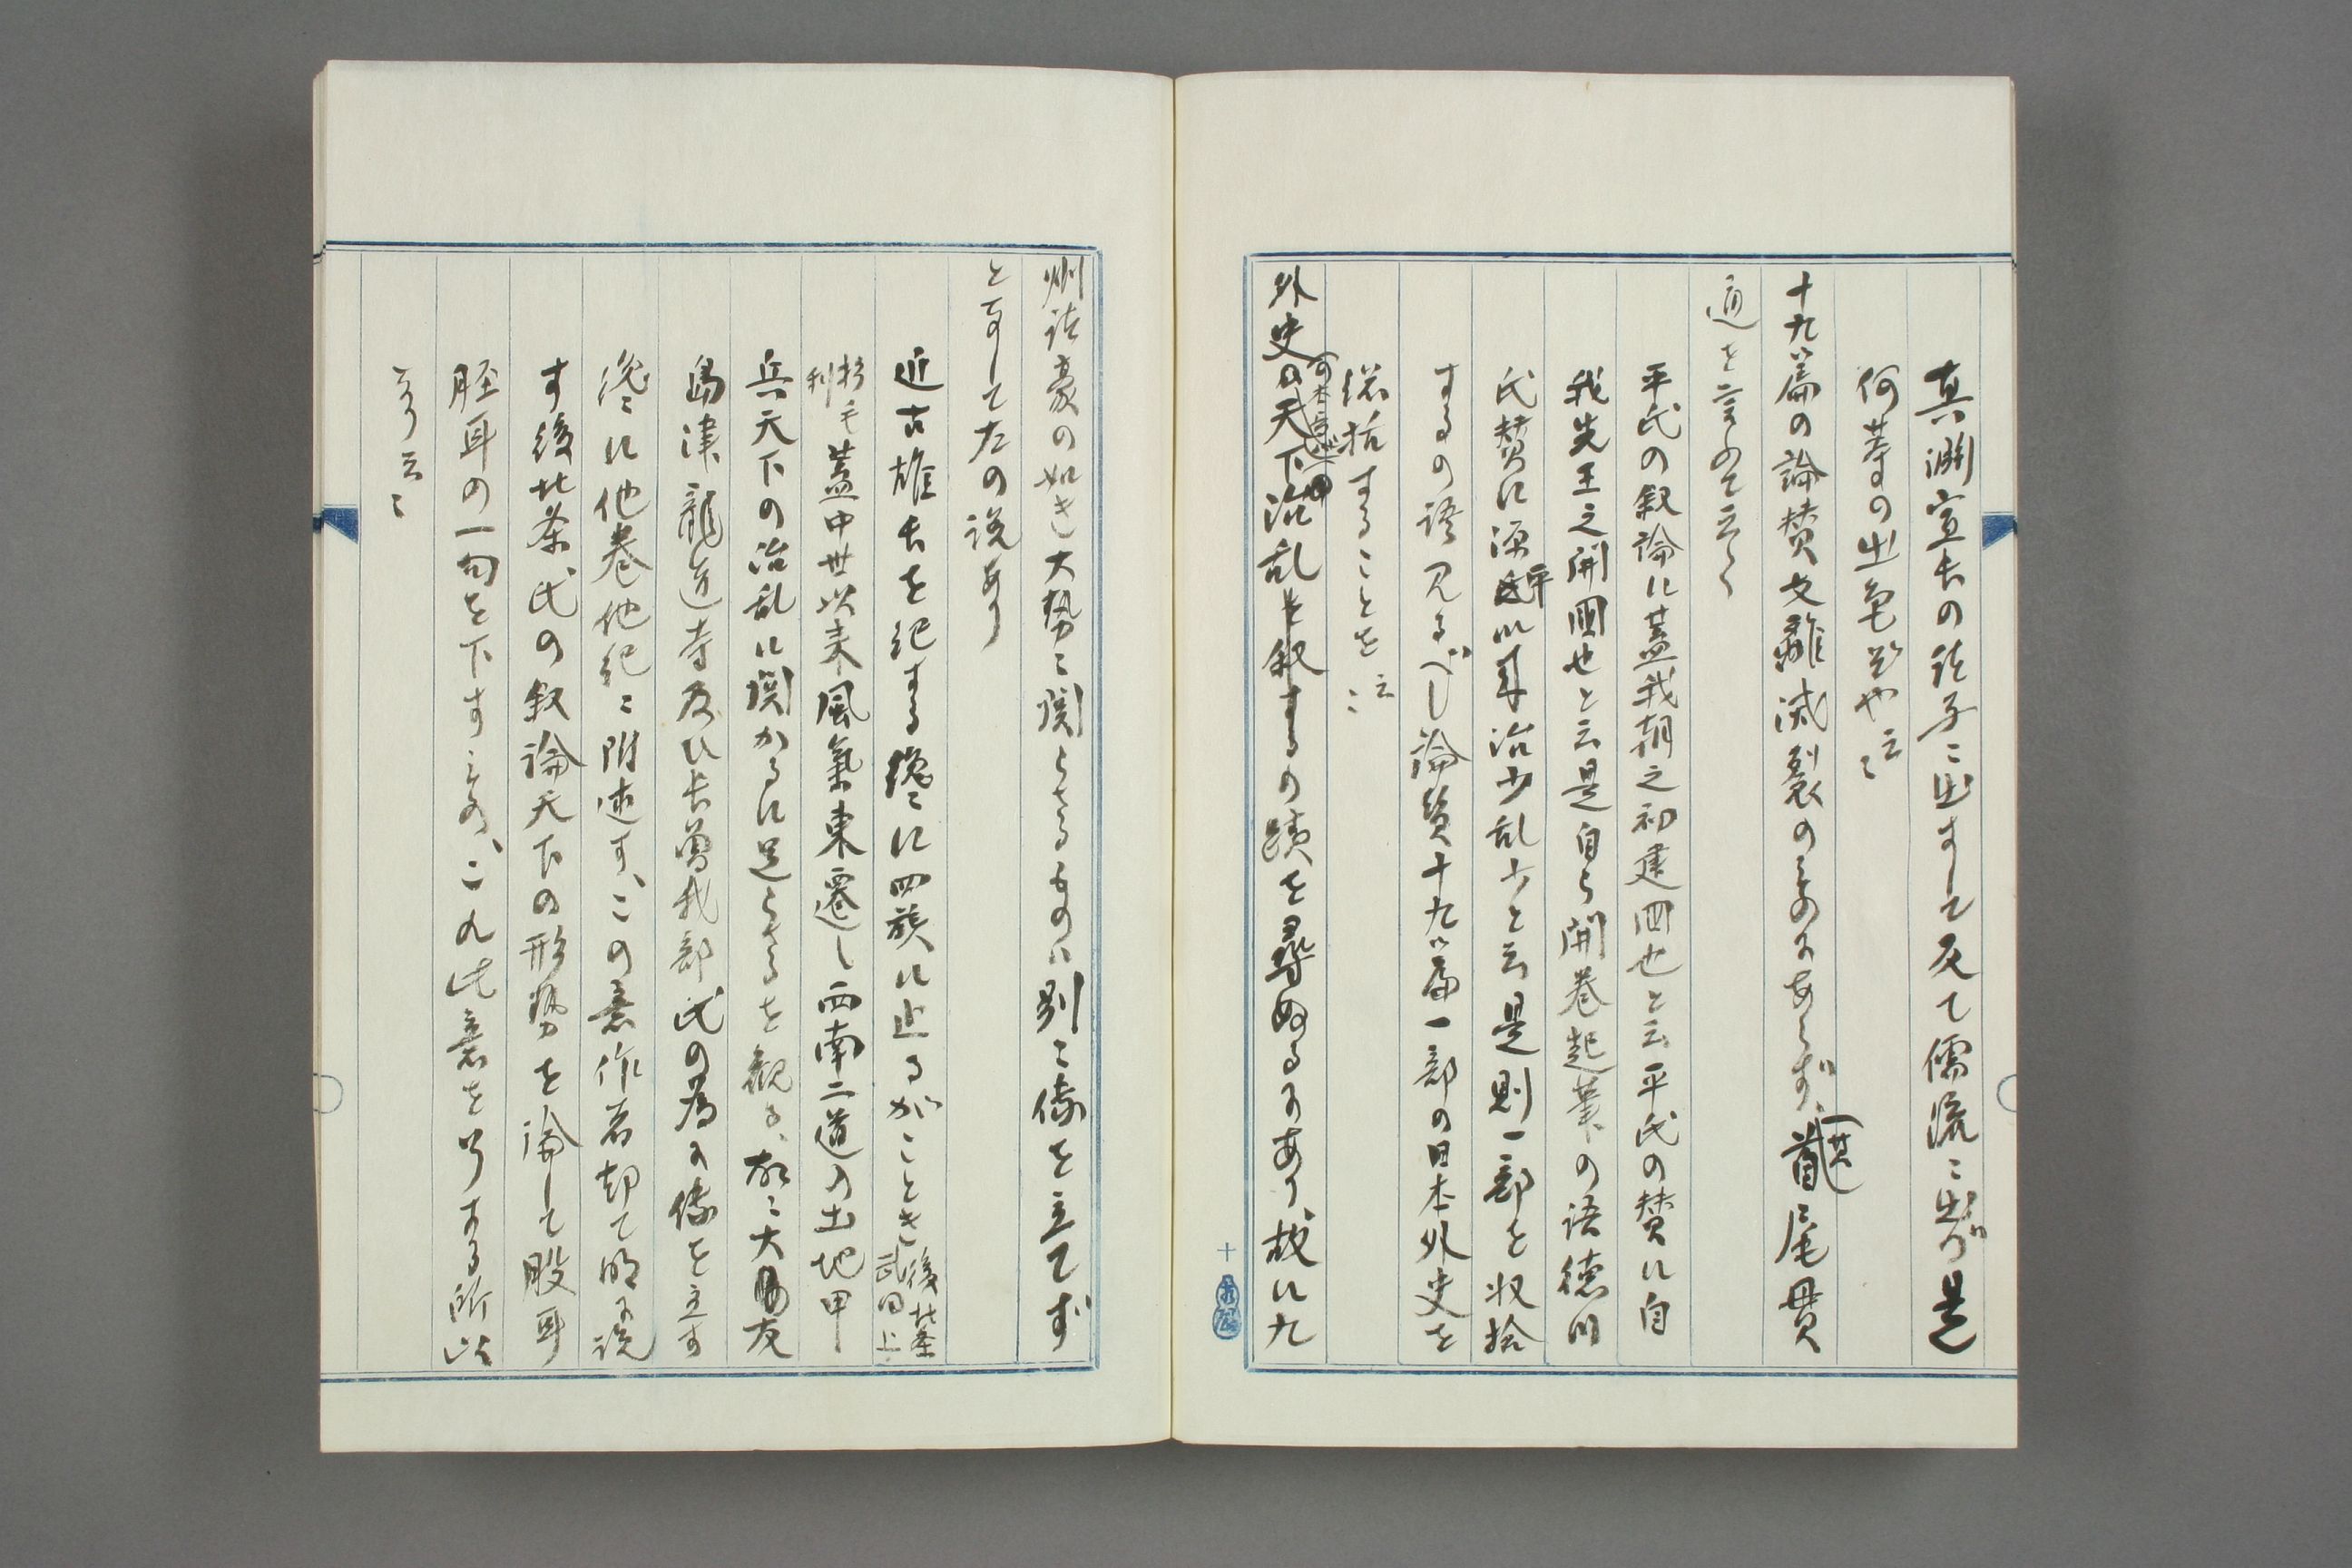 真淵宣長の諸子に出ずして反て儒流に出づ是
何等の出色ぞや云々
十九篇の論賛支離滅裂のものにあらず、首尾貫
通を言ふて云く
平氏の叙論に蓋我朝之初建国也と云平氏の賛に自
我先王之開國也と云是自ら開巻起筆の語徳川
氏賛に源平以来治少乱多と云是則一部を収拾
するの語見るべし論賛十九篇一部の日本外史を
総括することを云々
外史は天下治乱を叙するの蹟を尋ぬるにあり、故に九
州諸豪の如き大勢に関らさるものは別に伝を立てず
となして左の説あり
近古雄長を紀する纔に四族に止るがごとき後北条武田上
杉毛利蓋中世以来風氣東遷し西南二道の土地甲
兵天下の治乱に関かるに足らさるを観る、故に大友
島津龍造寺及ひ長曽我部氏の為に伝を立す
纔に他巻他紀に附述す、この意作者却て明に説
す後北条氏の叙論天下の形勢を論して股耳
脛耳の一句を下すもの、これ此意を寓する所以
なり云々
十